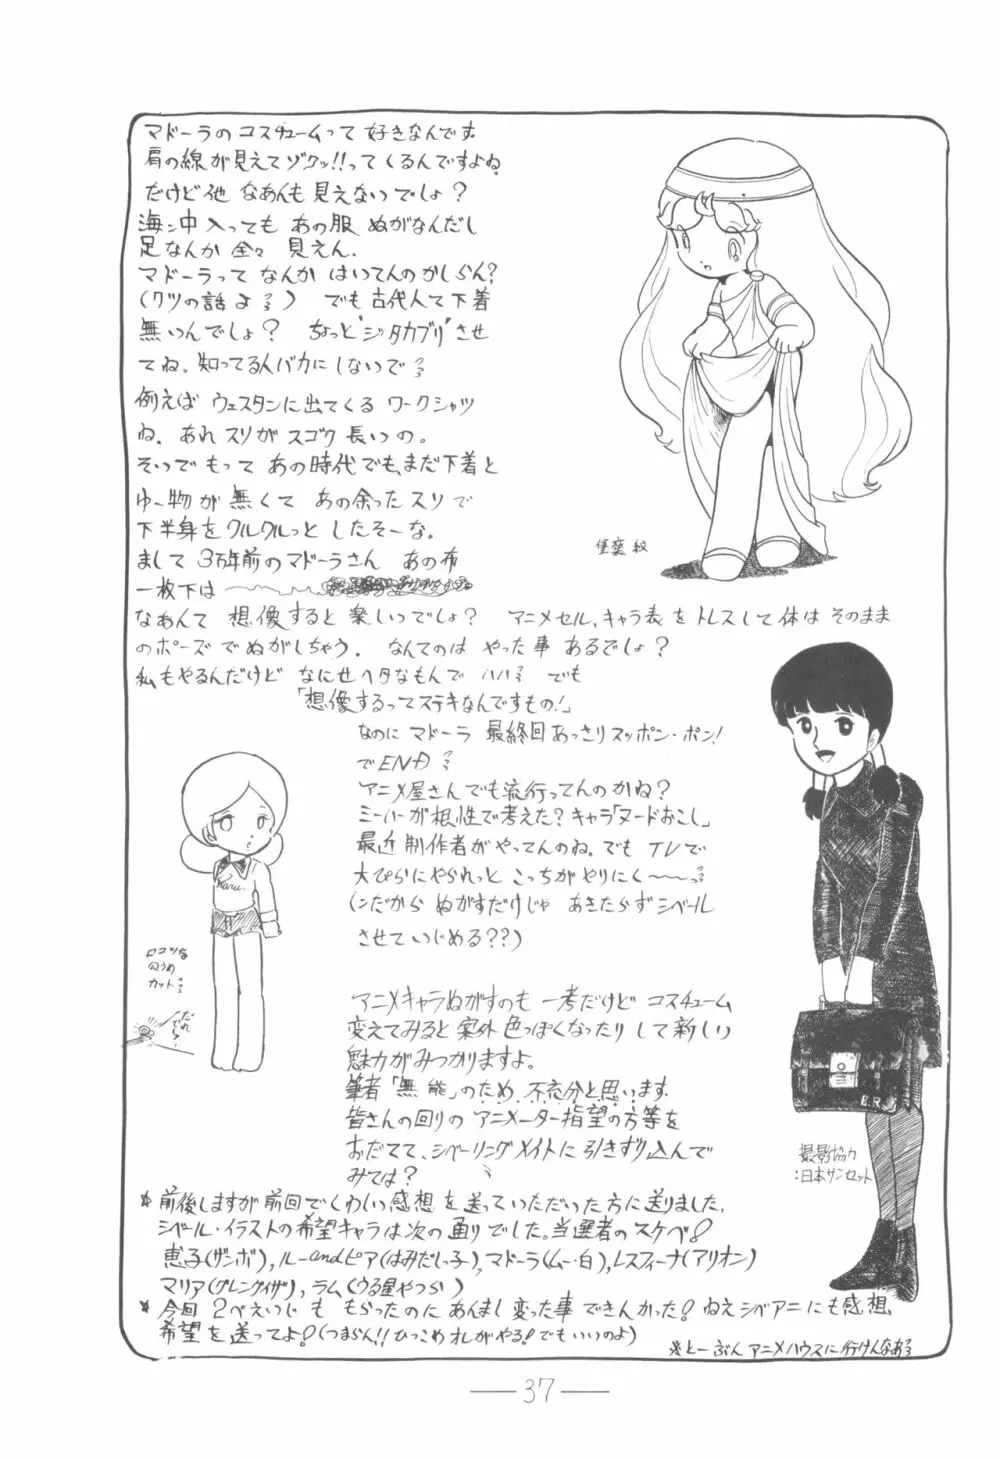 マドーラのコスチュームって好きなんです。
肩の線が見えてゾクッ!!ってくるんですよね。
だけど他 なあんも見えないでしょ?
海ン中入っても あの服 ぬがなんだし
足なんか全々 見えん.
マドーラって なんか はいてんのかしらん?
(クツの話よ) でも古代人て下着
無いんでしょ? ちょっと"シッタカブリ"させ
てね。知ってる人バカにしないで
例えば ウェスタンに出てくる ワークシャツ
ね. あれ スソが スゴク 長いの。
そいでもって あの時代でも、まだ下着と
ゆー物が 無くて あの余った スソで
下半身を クルクルっと したそーな。
まして 3万年前のマドーラさん あの布
一枚下は
なあんて 想像すると 楽しいでしょ? アニメセル、キャラ表を トレスして 体は そのまま
のポーズ で ぬがしちゃう. なんてのは やった事 あるでしょ?
私もやるんだけど なにせ ヘタなもんで でも
「想像するってステキなんですもの!」
なのに マドーラ 最終回 あっさり スッポン・ポン!
で END
アニメ屋さんでも流行ってんのかね?
ミーハーが根性で考えた? キャラ「ヌードおこし」
最近 制作者がやってんのね。でも TVで
大ぴらにやられっと こっちが やりにく〜
(だから ぬがすだけじゃ あきたらず シベール
させて いじめる??)
ロコツな
穴うめ
カット
だれ
でぇ
Karu
アニメキャラぬがすのも 一考だけど コスチューム
変えてみると 案外 色っぽくなったり して 新しい
魅力がみつかりますよ。
筆者「無能」のため 不充分と思います.
皆さんの回りの アニメーター指望の方等を
おだてて、シベーリングメイトに引きずり込んで
みては?
B.R
撮影協力
:日本サンセット
* 前後しますが前回でくわしい感想を送っていただいた方に送りました.
シベール・イラストの希望キャラは次の通りでした。当選者のスケベ!
恵子(ザンボ), ルーandピア(はみだしっ子), マドーラ(ムー・白), レスフィーナ(アリオン)
マリア(グレンダイザ), ラム(うる星やつら)
* 今回 2ぺえいじも もらったのに あんまし 変った事 できんかった! ねえ シベアニにも感想、
希望を送ってよ!(つまらん!! ひっこめ オレがやる! でもいいのよ)
※とーぶん アニメハウスに行けんなあ
37